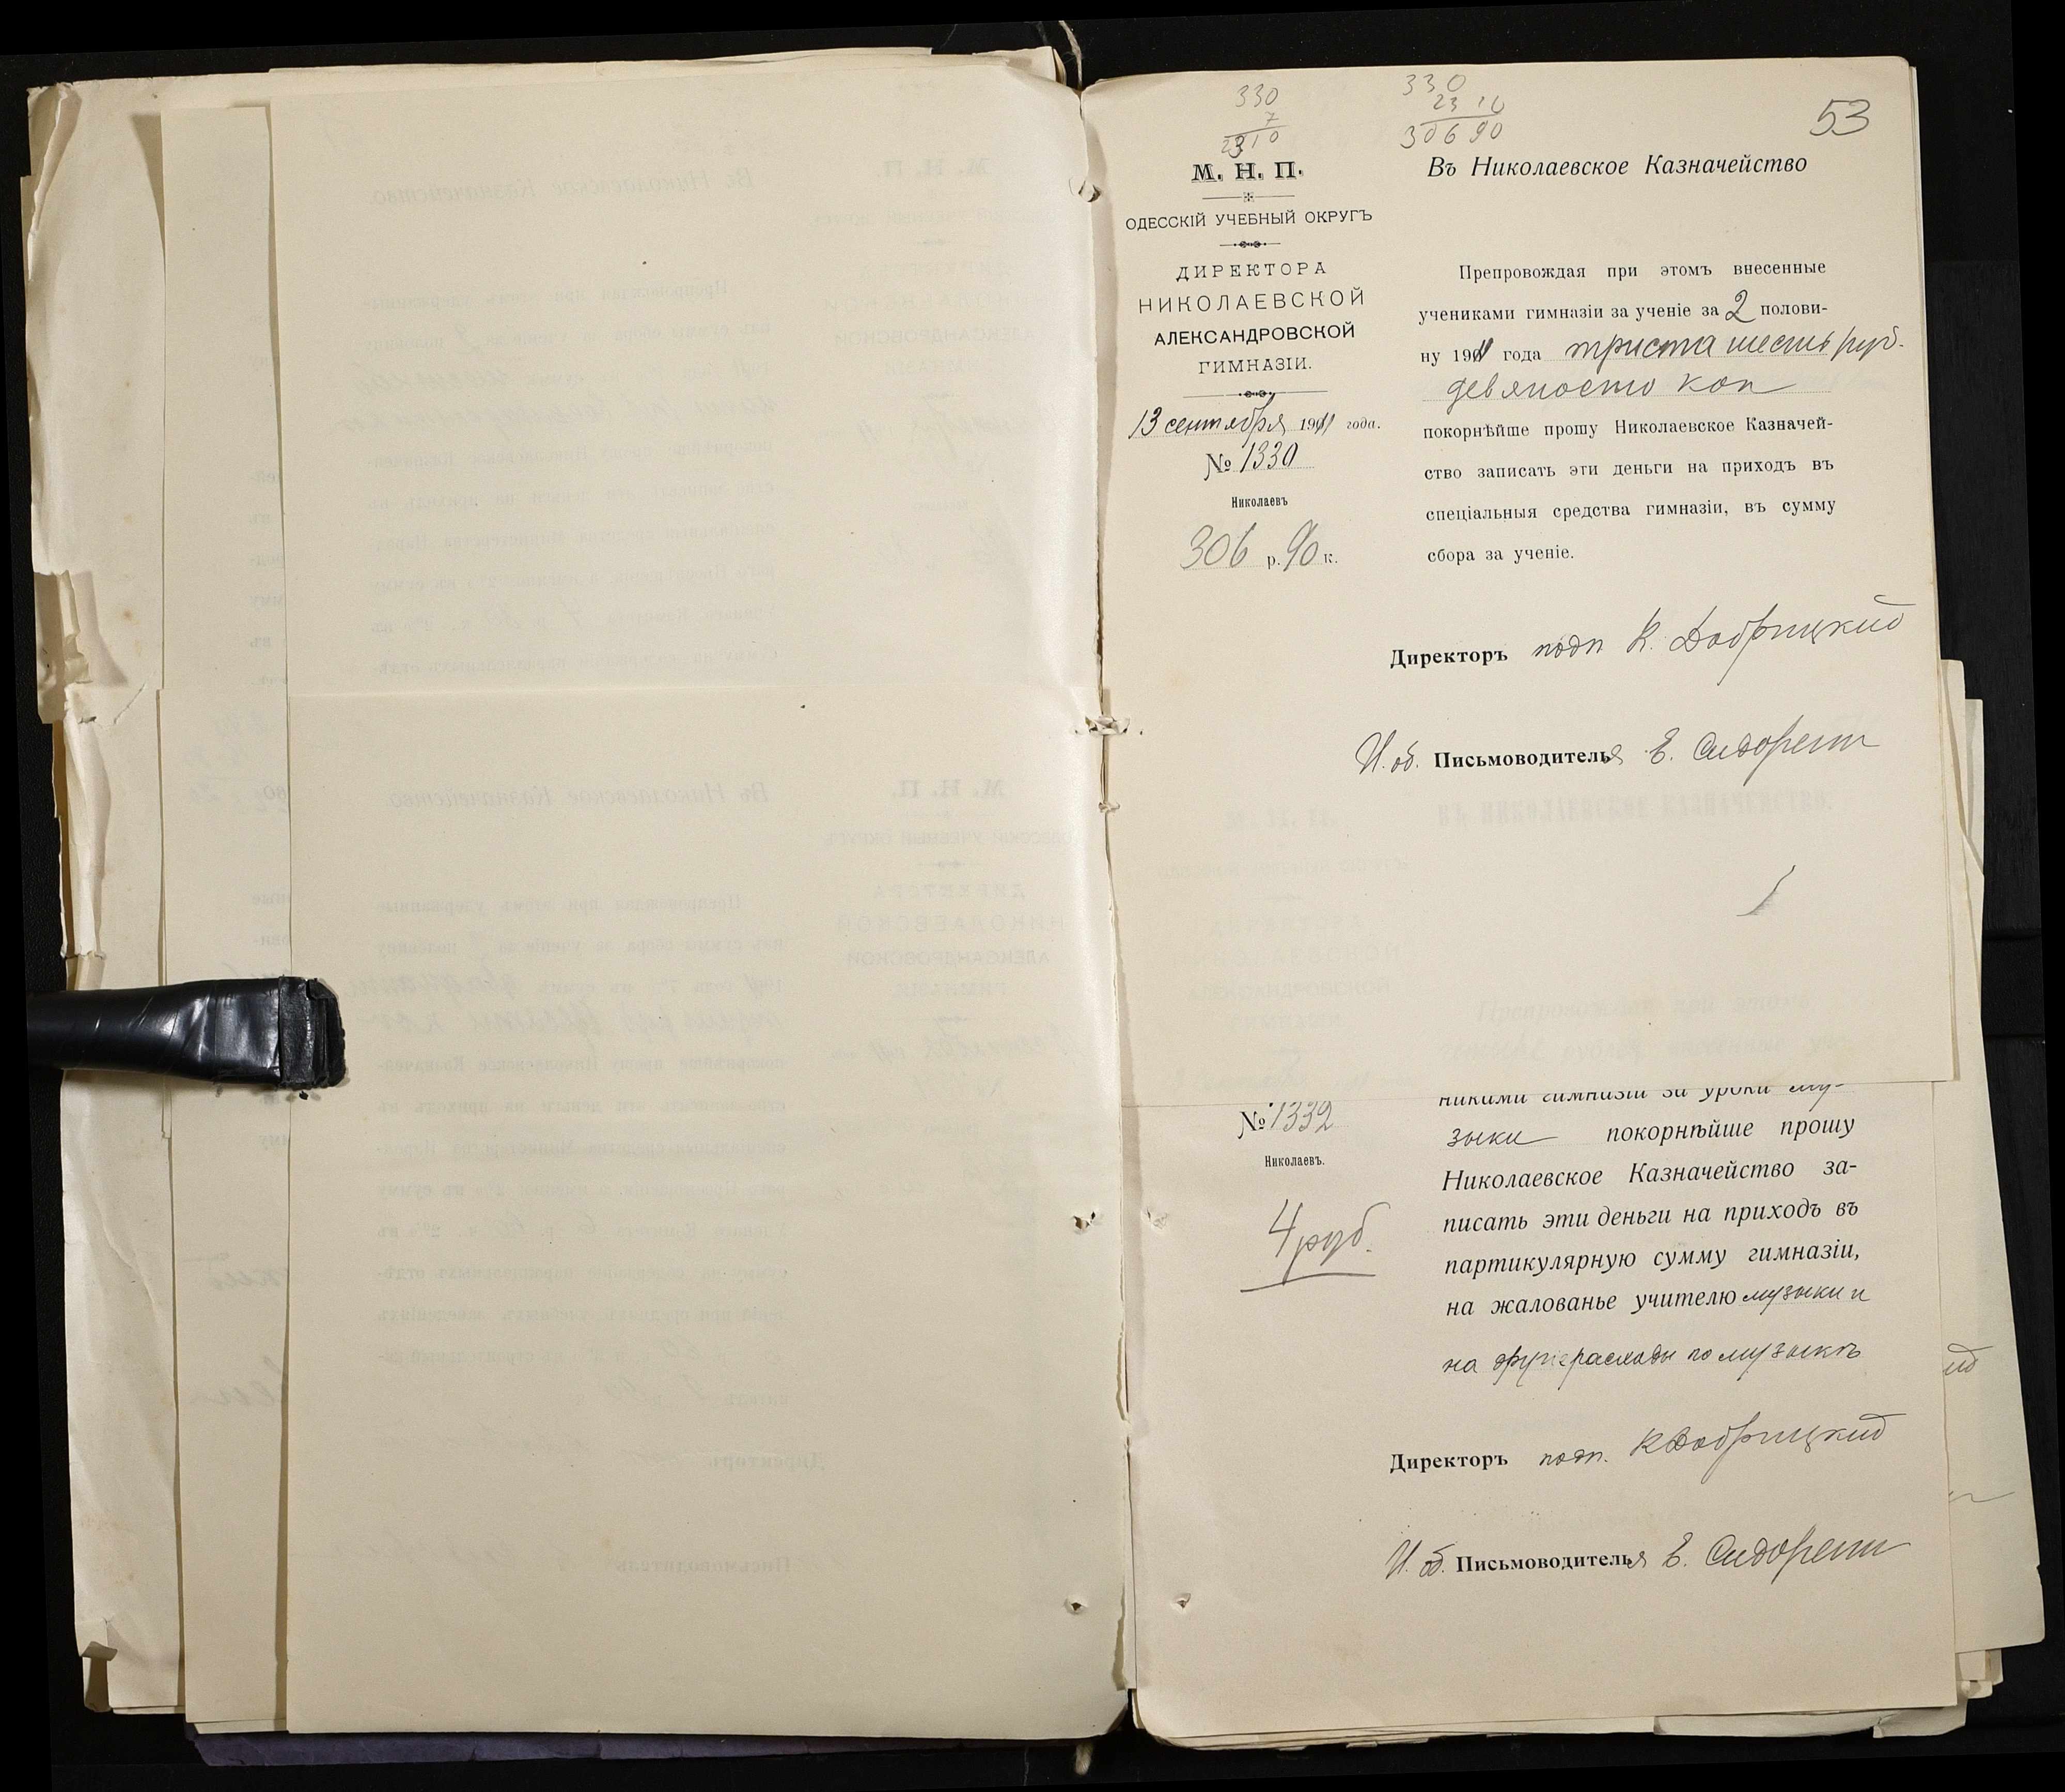 330
7
2310
330
23 10
306 90
53
М. Н. П.
ОДЕССКІЙ УЧЕБНЫЙ ОКРУГЪ
ДИРЕКТОРА
НИКОЛАЕВСКОЙ
АЛЕКСАНДРОВСКОЙ
ГИМНАЗІИ.
13 сентября 1911 года.
№ 1330
Николаевъ
306 р. 90 к.
Въ Николаевское Казначейство
Препровождая при этомъ внесенные
учениками гимназіи за ученіе за 2 полови-
ну 1911 года триста шесть руб.
девяносто коп
покорнѣйше прошу Николаевское Казначей-
ство записать эти деньги на приходъ въ
спеціальныя средства гимназіи, въ сумму
сбора за ученіе.
Директоръ подп К. Добрицкий
И. об. Письмоводителья Е. Сидорент
№ 1332
Николаевъ.
4 руб.
никами гимназіи за уроки му-
зыки покорнѣйше прошу
Николаевское Казначейство за-
писать эти деньги на приходъ въ
партикулярную сумму гимназіи,
на жалованье учителю музыки и
на другіе расходы по музыкѣ
Директоръ подп. К Добрицкий
И. об. Письмоводителья Е. Сидорент